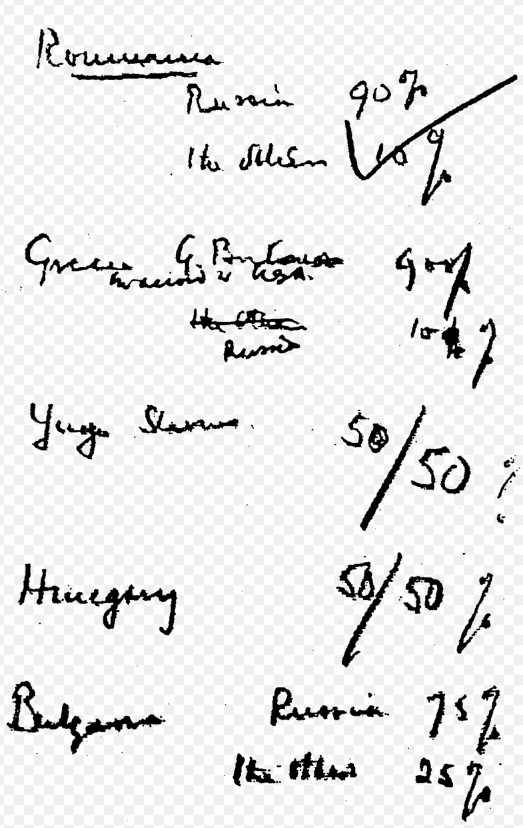 Roumania
Russia 90%
The others 10%
Greece G. Britain 90%
in accord w USA.
The others
Russia 10%
Yugo Slavia 50/50 %
Hungary 50/50 %
Bulgaria Russia 75%
The others 25%